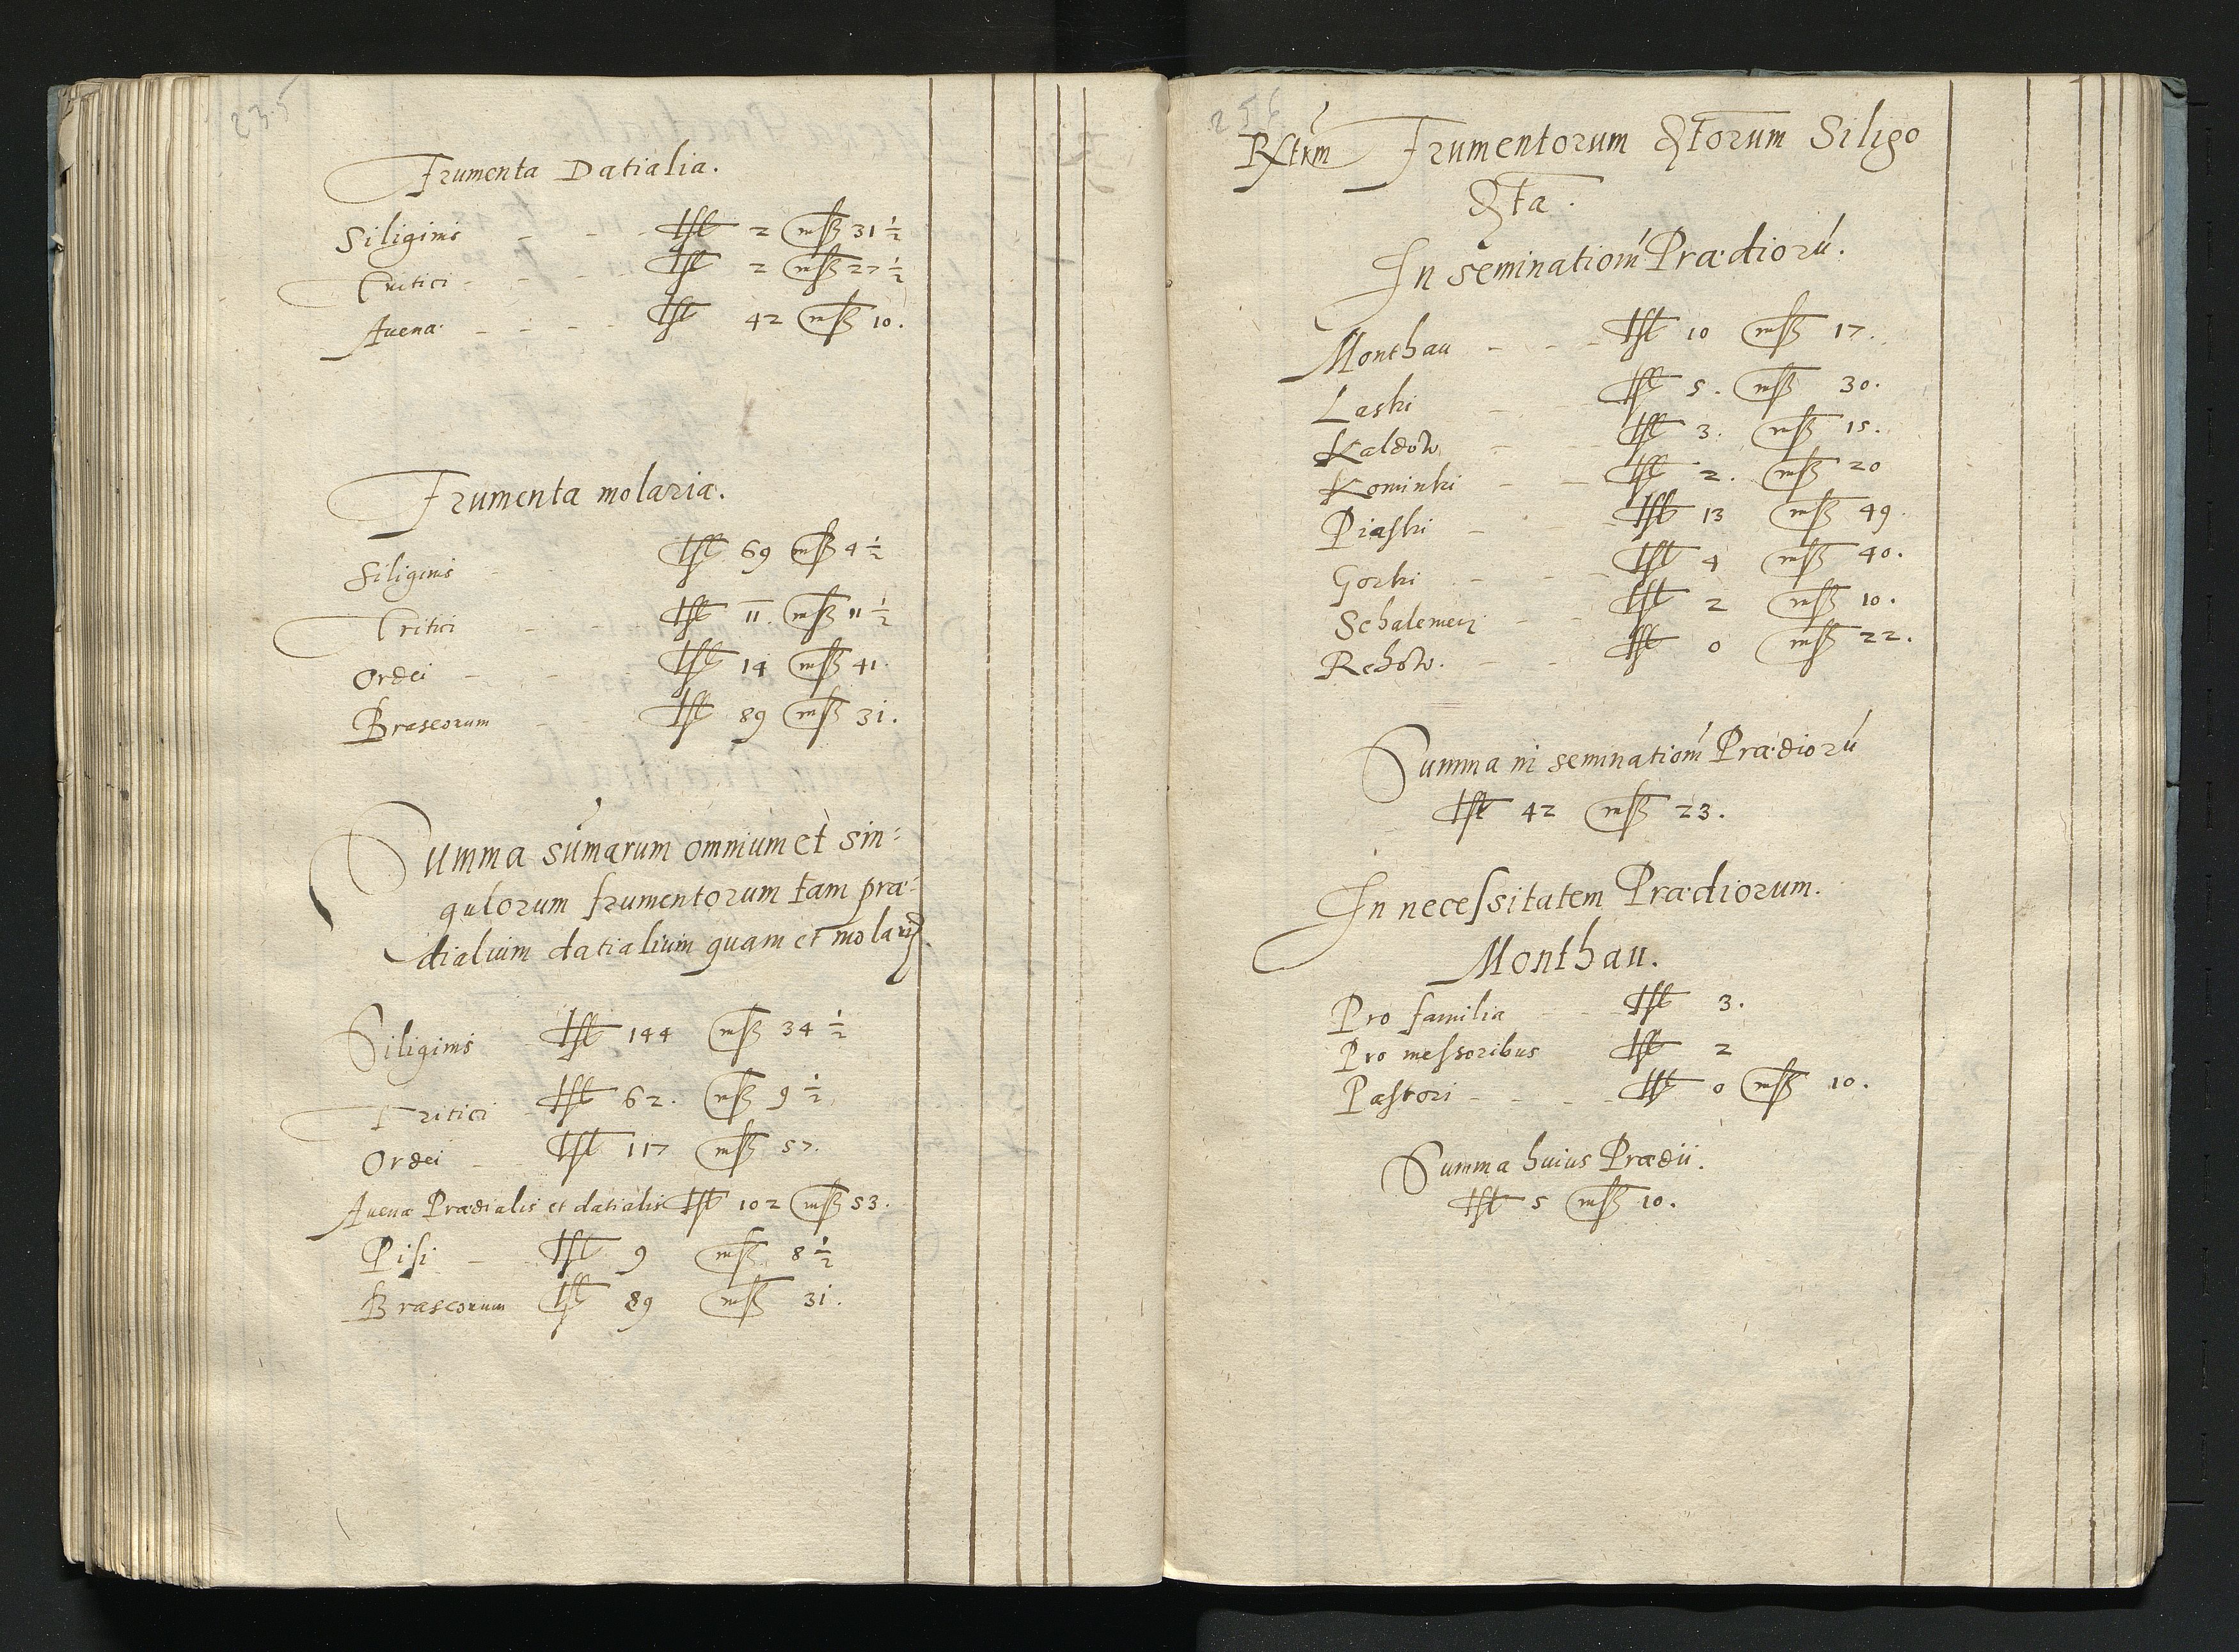 235
Frumenta Datialia.
Siliginis - - - lſt 2 mſz 31 ½
Tritici - - - lſt 2 mſz 27 ½
Auena - - - - lſt 42 mſz 10.
Frumenta molaria.
Siliginis - lſt 69 mſz 4 ½
Tritici - - - lſt 11. mſz 11 ½
Ordei - - - lſt 14 mſz 41.
Braseorum - - lſt 89 mſz 31.
Summa sumarum omnium et sin=
gulorum frumentorum tam præ=
dialium datialium quam et molariu
Siliginis lſt 144 mſz 34 ½
Tritici lſt 62. mſz 9 ½
Ordei - - lſt 117 mſz 57.
Auena Prædialis et datialis lſt 102 mſz 53.
Piſi - lſt 9 mſz 8 ½
Braseorum lſt 89 mſz 31.
236
Frumentorum Siligo
In seminationẽ Prædiorú.
Monthau - - - lſt 10 mſz 17.
Laski - - - lſt 5. mſz 30.
Kaldow - - lſt 3. mſz 15.
Kominki - - lſt 2. mſz 20
Piaſki - - - lſt 13 mſz 49.
Gorki - - - lſt 4 mſz 40.
Schalemeÿ - - lſt 2 mſz 10.
Rehow. - - lſt 0 mſz 22.
Summa in seminationẽ Prædiorú
lſt 42 mſz 23.
In neceſsitatem Prædiorum.
Monthau.
Pro familia - - lſt 3.
Pro meſsoribus lſt 2
Paſtori - - - - lſt 0 mſz 10.
Summa huius Prædii.
lſt 5 mſz 10.